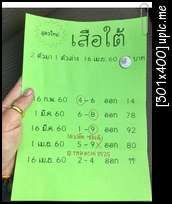 สูตรใหม่
เสือใต้
2 ตัวมา 1 ตัวล่าง 16 เม.ย. 60 บาท
16 ก.พ. 60 4-6 ออก 14
1 มี.ค. 60 6-8 ออก 78
16 มี.ค. 60 1-9 ออก 92
1 เม.ย. 60 5-9 X ออก 80
16 เม.ย. 60 2-4 ออก ??
[301x400] upic.me